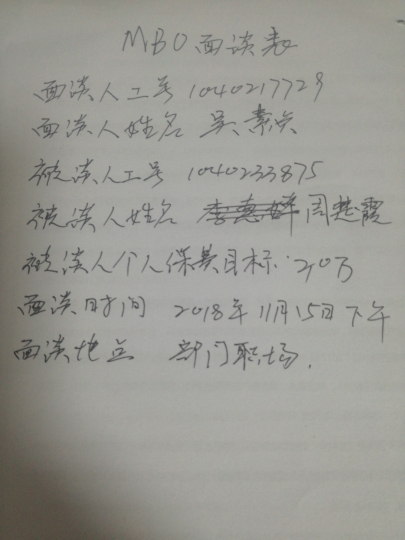 MBO面谈表
面谈人工号 1040217729
面谈人姓名 吴素兵
被谈人工号 1040233875
被谈人姓名 周楚霞
被谈人个人保美目标:20万
面谈时间 2018年11月15日下午
面谈地点 部门职场.